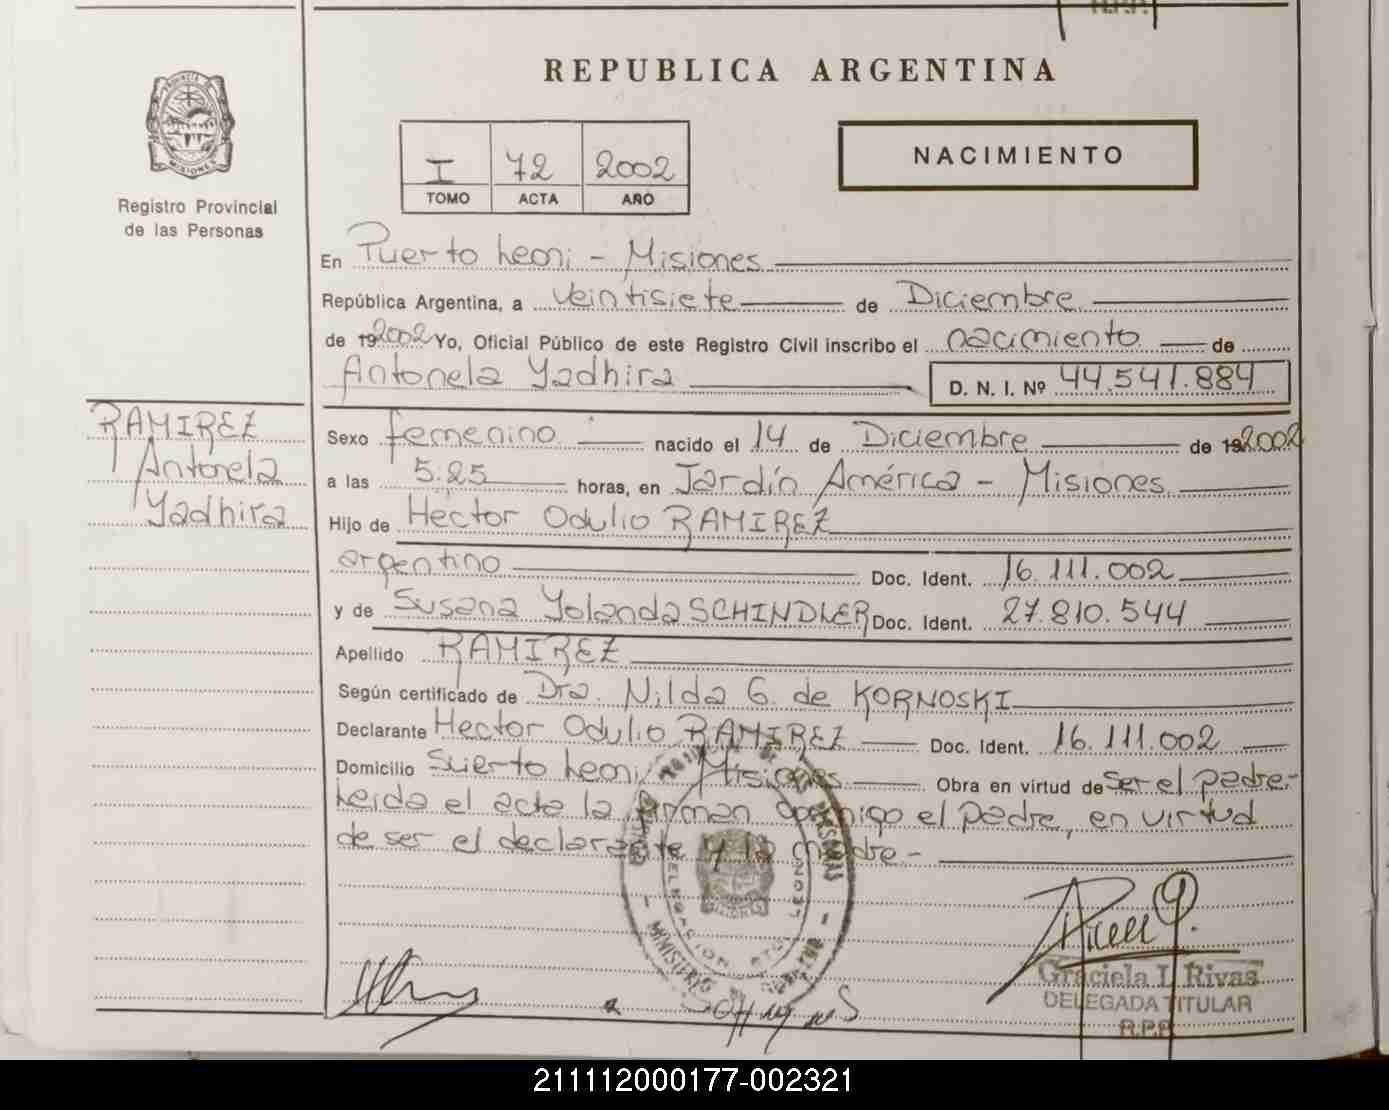 R.P.P.
REPUBLICA ARGENTINA
PROVINCIA
MISIONES
Registro Provincial
de las Personas
I 72 2002
TOMO ACTA AÑO
NACIMIENTO
En Puerto Leoni - Misiones
República Argentina, a veintisiete de Diciembre
de 192002 Yo, Oficial Público de este Registro Civil inscribo el nacimiento de
Antonela Yadhira D. N. I. Nº 44.541.884
RAMIREZ
Antonela
Yadhira
Sexo femenino nacido el 14 de Diciembre de 192002
a las 5.25 horas, en Jardín América - Misiones
Hijo de Héctor Odulio RAMIREZ
argentino Doc. Ident. 16.111.002
y de Susana Yolanda SCHINDLER Doc. Ident. 27.810.544
Apellido RAMIREZ
Según certificado de Dra. Nilda G. de KORNOSKI
Declarante Héctor Odulio RAMIREZ Doc. Ident. 16.111.002
Domicilio Puerto Leoni, Misiones Obra en virtud de ser el padre-
Leida el acta la firman conmigo el padre, en virtud
de ser el declarante y la madre-
DE LAS PERSONAS
DELEGACION
MINISTERIO DE
Graciela I. Rivas
DELEGADA TITULAR
R.P.P.
211112000177-002321